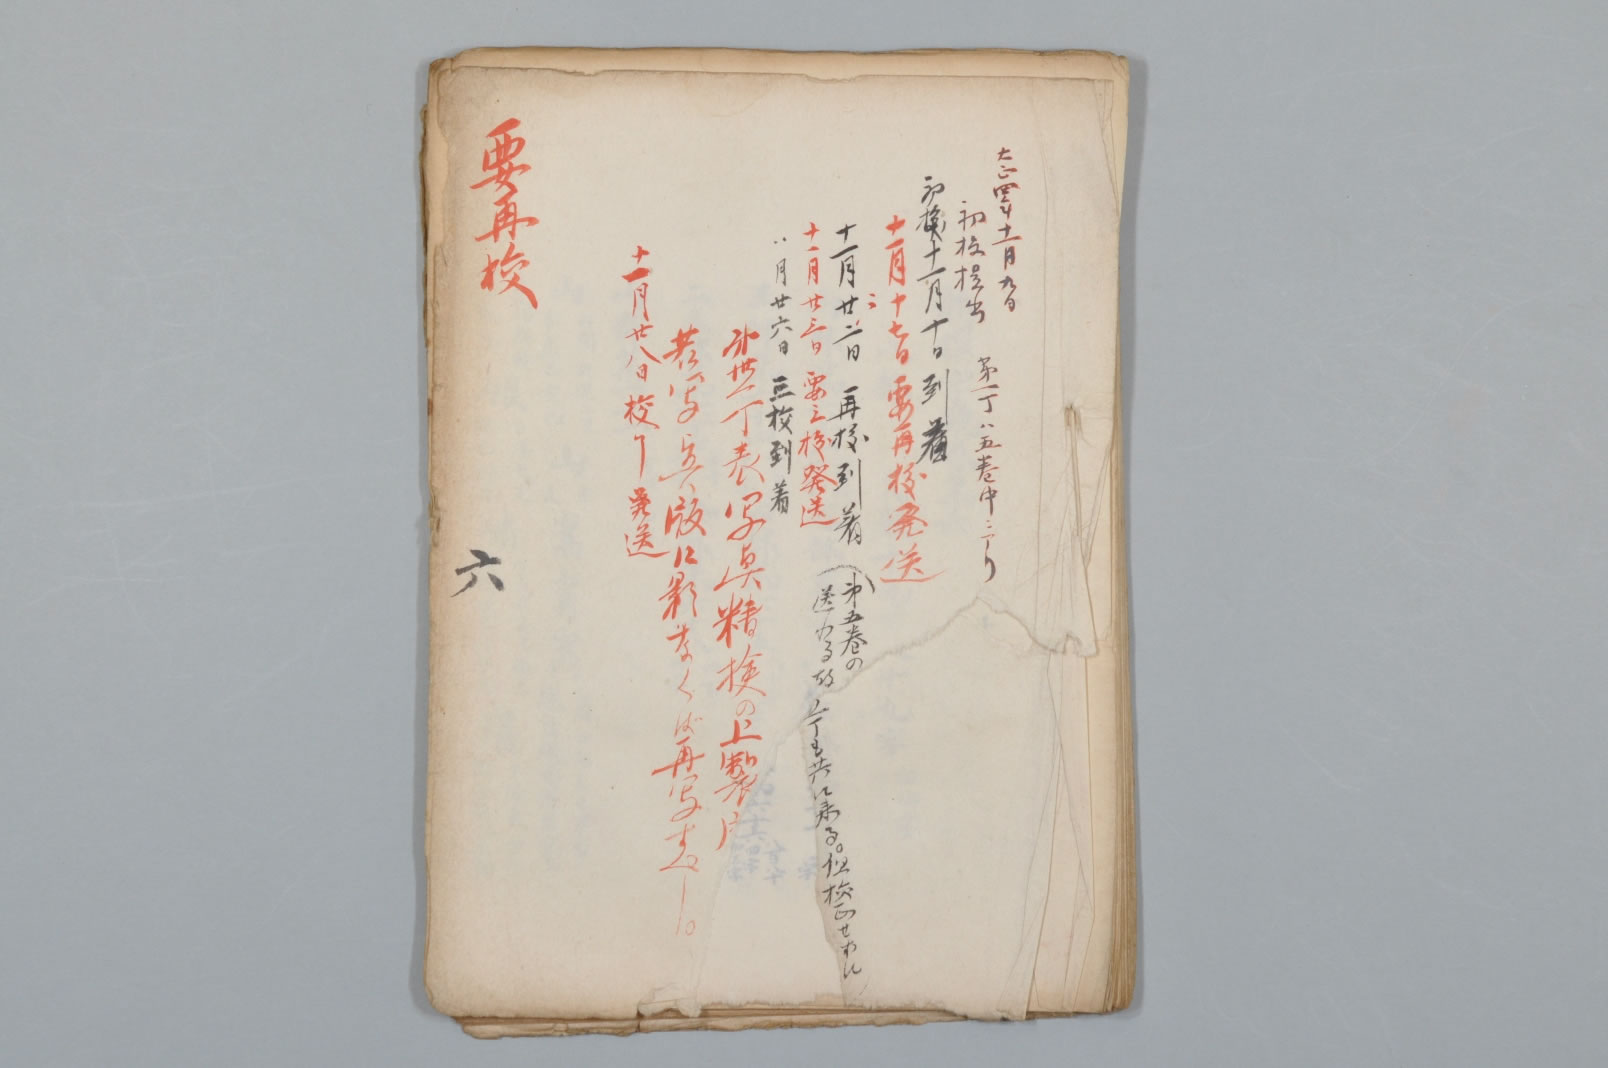 大正四年十一月九日
初校提出　第一丁ハ五巻中ニアリ
初校十一月十日到着
十一月十七日要再校発送
十一月廿二日　再校到着
（第五巻の
送りたる故　丁も共に来る。但校正せられ
十一月廿三日要三校発送
〃月廿六日　三校到着
第廿一丁表写真精検の上製片
若写真版に影なくば再写すべし。
十一月廿八日校了発送
要再校
六